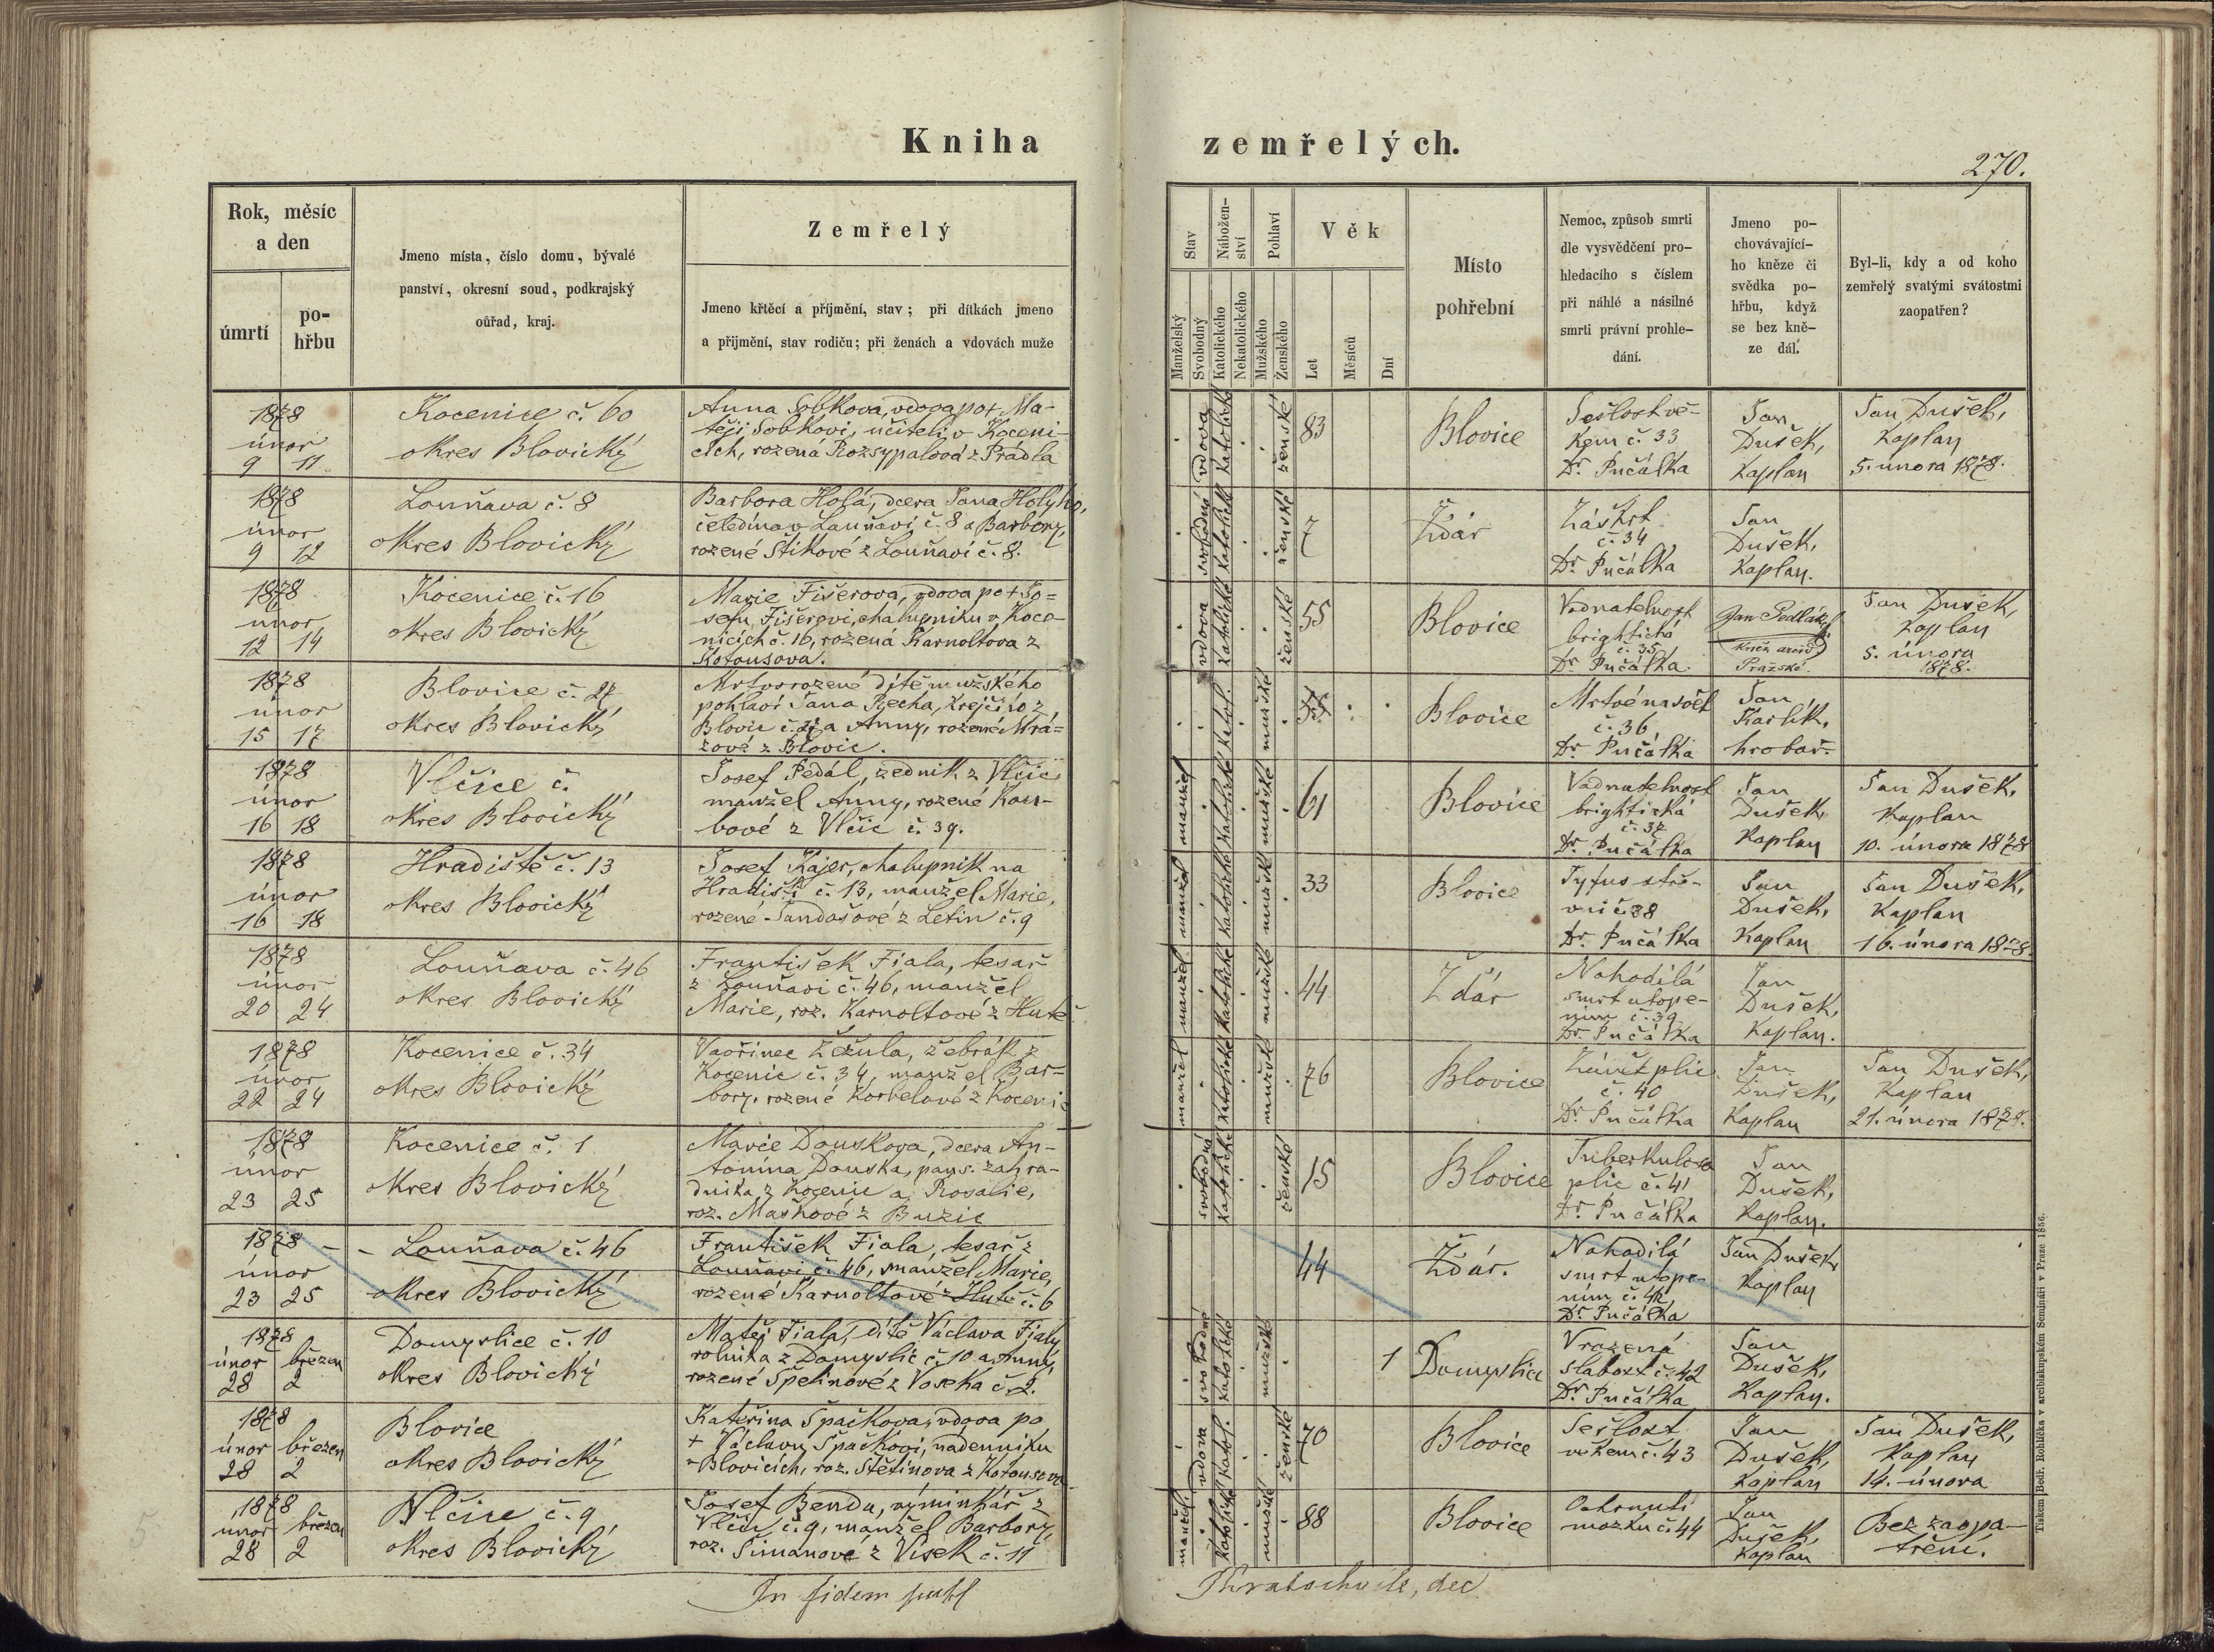 Kniha zemřelých.
270.
Rok, měsíc
a den
úmrtí
po-
hřbu
Jmeno místa, číslo domu, bývalé
panství, okresní soud, podkrajský
oúřad, kraj.
Zemřelý
Jmeno křtěcí a příjmění, stav; při dítkách jmeno
a přijmění, stav rodiču; při ženách a vdovách muže
Stav
Manželský
Svobodný
Nábožen-
ství
Katolického
Nekatolického
Pohlaví
Mužského
Ženského
Věk
Let
Měsíců
Dní
Místo
pohřební
Nemoc, způsob smrti
dle vysvědčení pro-
hledacího s číslem
při náhlé a násilné
smrti právní prohle-
dání.
Jmeno po-
chovávající-
ho kněze či
svědka po-
hřbu, když
se bez kně-
ze dál.
Byl-li, kdy a od koho
zemřelý svatými svátostmi
zaopatřen?
1878
únor
9 11
Kocenice č. 60
okres Blovický
Anna Sobkova, vdova po + Ma-
těji Sobkovi, učiteli v Koceni-
cích, rozená Rozsypalová z Prádla
vdova
katolické
ženské
83
Blovice
Sešlost vě-
kem č. 33
Dr. Pučálka
Jan
Dušek,
Kaplan
Jan Dušek,
Kaplan
5. února 1878.
1878
únor
9 12
Louňava č. 8
okres Blovický
Barbora Holá, dcera Jana Holýho,
čeledína v Louňaví č. 8 a Barbory,
rozené Štikové z Louňaví č. 8.
svobodná
katolické
ženské
7
Ždár
Záškrt
č. 34
Dr. Pučálka
Jan
Dušek,
Kaplan.
1878
únor
12 14
Kocenice č. 16
okres Blovický
Marie Fišerova, vdova po + Jo=
sefu Fišerovi, chalupníku v Koce-
nicích č. 16, rozená Karnoltova z
Kotousova.
vdova
katolické
ženské
55
Blovice
Vodnatelnost
brightická
č. 35
Dr. Pučálka.
Jan Sedlák,
Pražské
Jan Dušek,
Kaplan
5. února
1878.
1878
únor
15 17
Blovice č. 27
okres Blovický
Mrtvorozené dítě mužského
pohlaví Jana Recha, krejčího z
Blovic č. 27 a Anny, rozené Mrá=
zové z Blovic.
katol.
mužské
Blovice
Mrtvé na svět
č. 36,
Dr. Pučálka
Jan
Karlík,
hrobař.
1878
únor
16 18
Vlčice č.
okres Blovický
Josef Pedál, zedník z Vlčic
manžel Anny, rozené Kou-
bové z Vlčic č. 39.
manžel
katolické
mužské
61
Blovice
Vodnatelnost
brightická
č. 37
Dr. Pučálka
Jan
Dušek,
Kaplan
Jan Dušek,
Kaplan
10. února 1878
1878
únor
16 18
Hradiště č. 13
okres Blovický
Josef Kajer, chalupník na
Hradišti č. 13, manžel Marie,
rozené Šandašové z Letin č. 9
manžel
katolické
mužské
33
Blovice
Tyfus stře-
vní č. 38
Dr. Pučálka
Jan
Dušek,
Kaplan
Jan Dušek,
Kaplan
16. února 1878.
1878
únor
20 24
Louňava č. 46
okres Blovický
František Fiala, tesař
z Louňaví č. 46, manžel
Marie, roz. Karnoltové z Hutě
manžel
katolické
mužské
44
Ždár
Nahodilá
smrt utope-
ním č. 39
Dr. Pučálka
Jan
Dušek,
Kaplan.
1878
únor
22 24
Kocenice č. 34
okres Blovický
Vavřinec Žežula, žebrák z
Kocenic č. 34, manžel Bar=
bory, rozené Korbelové z Kocenic
manžel
katolické
mužské
76
Blovice
Zánět plic
č. 40
Dr. Pučálka
Jan
Dušek,
Kaplan
Jan Dušek,
Kaplan
21. února 1878.
1878
únor
23 25
Kocenice č. 1
okres Blovický
Marie Douskova, dcera An-
tonína Douska, pans. zahra-
dníka z Kocenic a Rosalie,
roz. Maškové z Buzic
svobodná
katolické
ženské
15
Blovice
Tuberkulosa
plic č. 41
Dr. Pučálka
Jan
Dušek,
Kaplan.
1878
únor
23 25
Louňava č. 46
okres Blovický
František Fiala, tesař z
Louňaví č. 46, manžel Marie,
rozené Karnoltové z Hutě č. 6
44
Ždár.
Nahodilá
smrt utope-
ním č. 42
Dr. Pučálka
Jan Dušek
Kaplan
1878
únor březen
28 2
Domyslice č. 10
okres Blovický
Matěj Fiala, dítě Václava Fialy
rolníka z Domyslic č. 10 a Anny,
rozené Špelinové z Voseka č. 2.
svobodné
katolické
mužské
1
Domyslice
Vrozená
slabost č. 42
Dr. Pučálka
Jan
Dušek,
Kaplan.
1878
únor březen
28 2
Blovice
okres Blovický
Kateřina Špačkova, vdova po
+ Václavu Špačkovi, nádenníku
v Blovicích, roz. Štětinova z Kotousova
vdova
katol.
ženské
70
Blovice
Sešlost
věkem č. 43
Jan
Dušek,
Kaplan
Jan Dušek,
Kaplan
14. února
1878
únor březen
28 2
Vlčice č. 9
okres Blovický
Josef Benda, výminkář z
Vlčic č. 9, manžel Barbory,
roz. Šimanové z Vísek č. 11
manžel
katolické
mužské
88
Blovice
Ochrnutí
mozku č. 44
Jan
Dušek,
Kaplan
Bez zaopa-
tření.
In fidem
dec
Tiskem Bedř. Rohlíčka v arcibiskupském Semináři v Praze 1856.